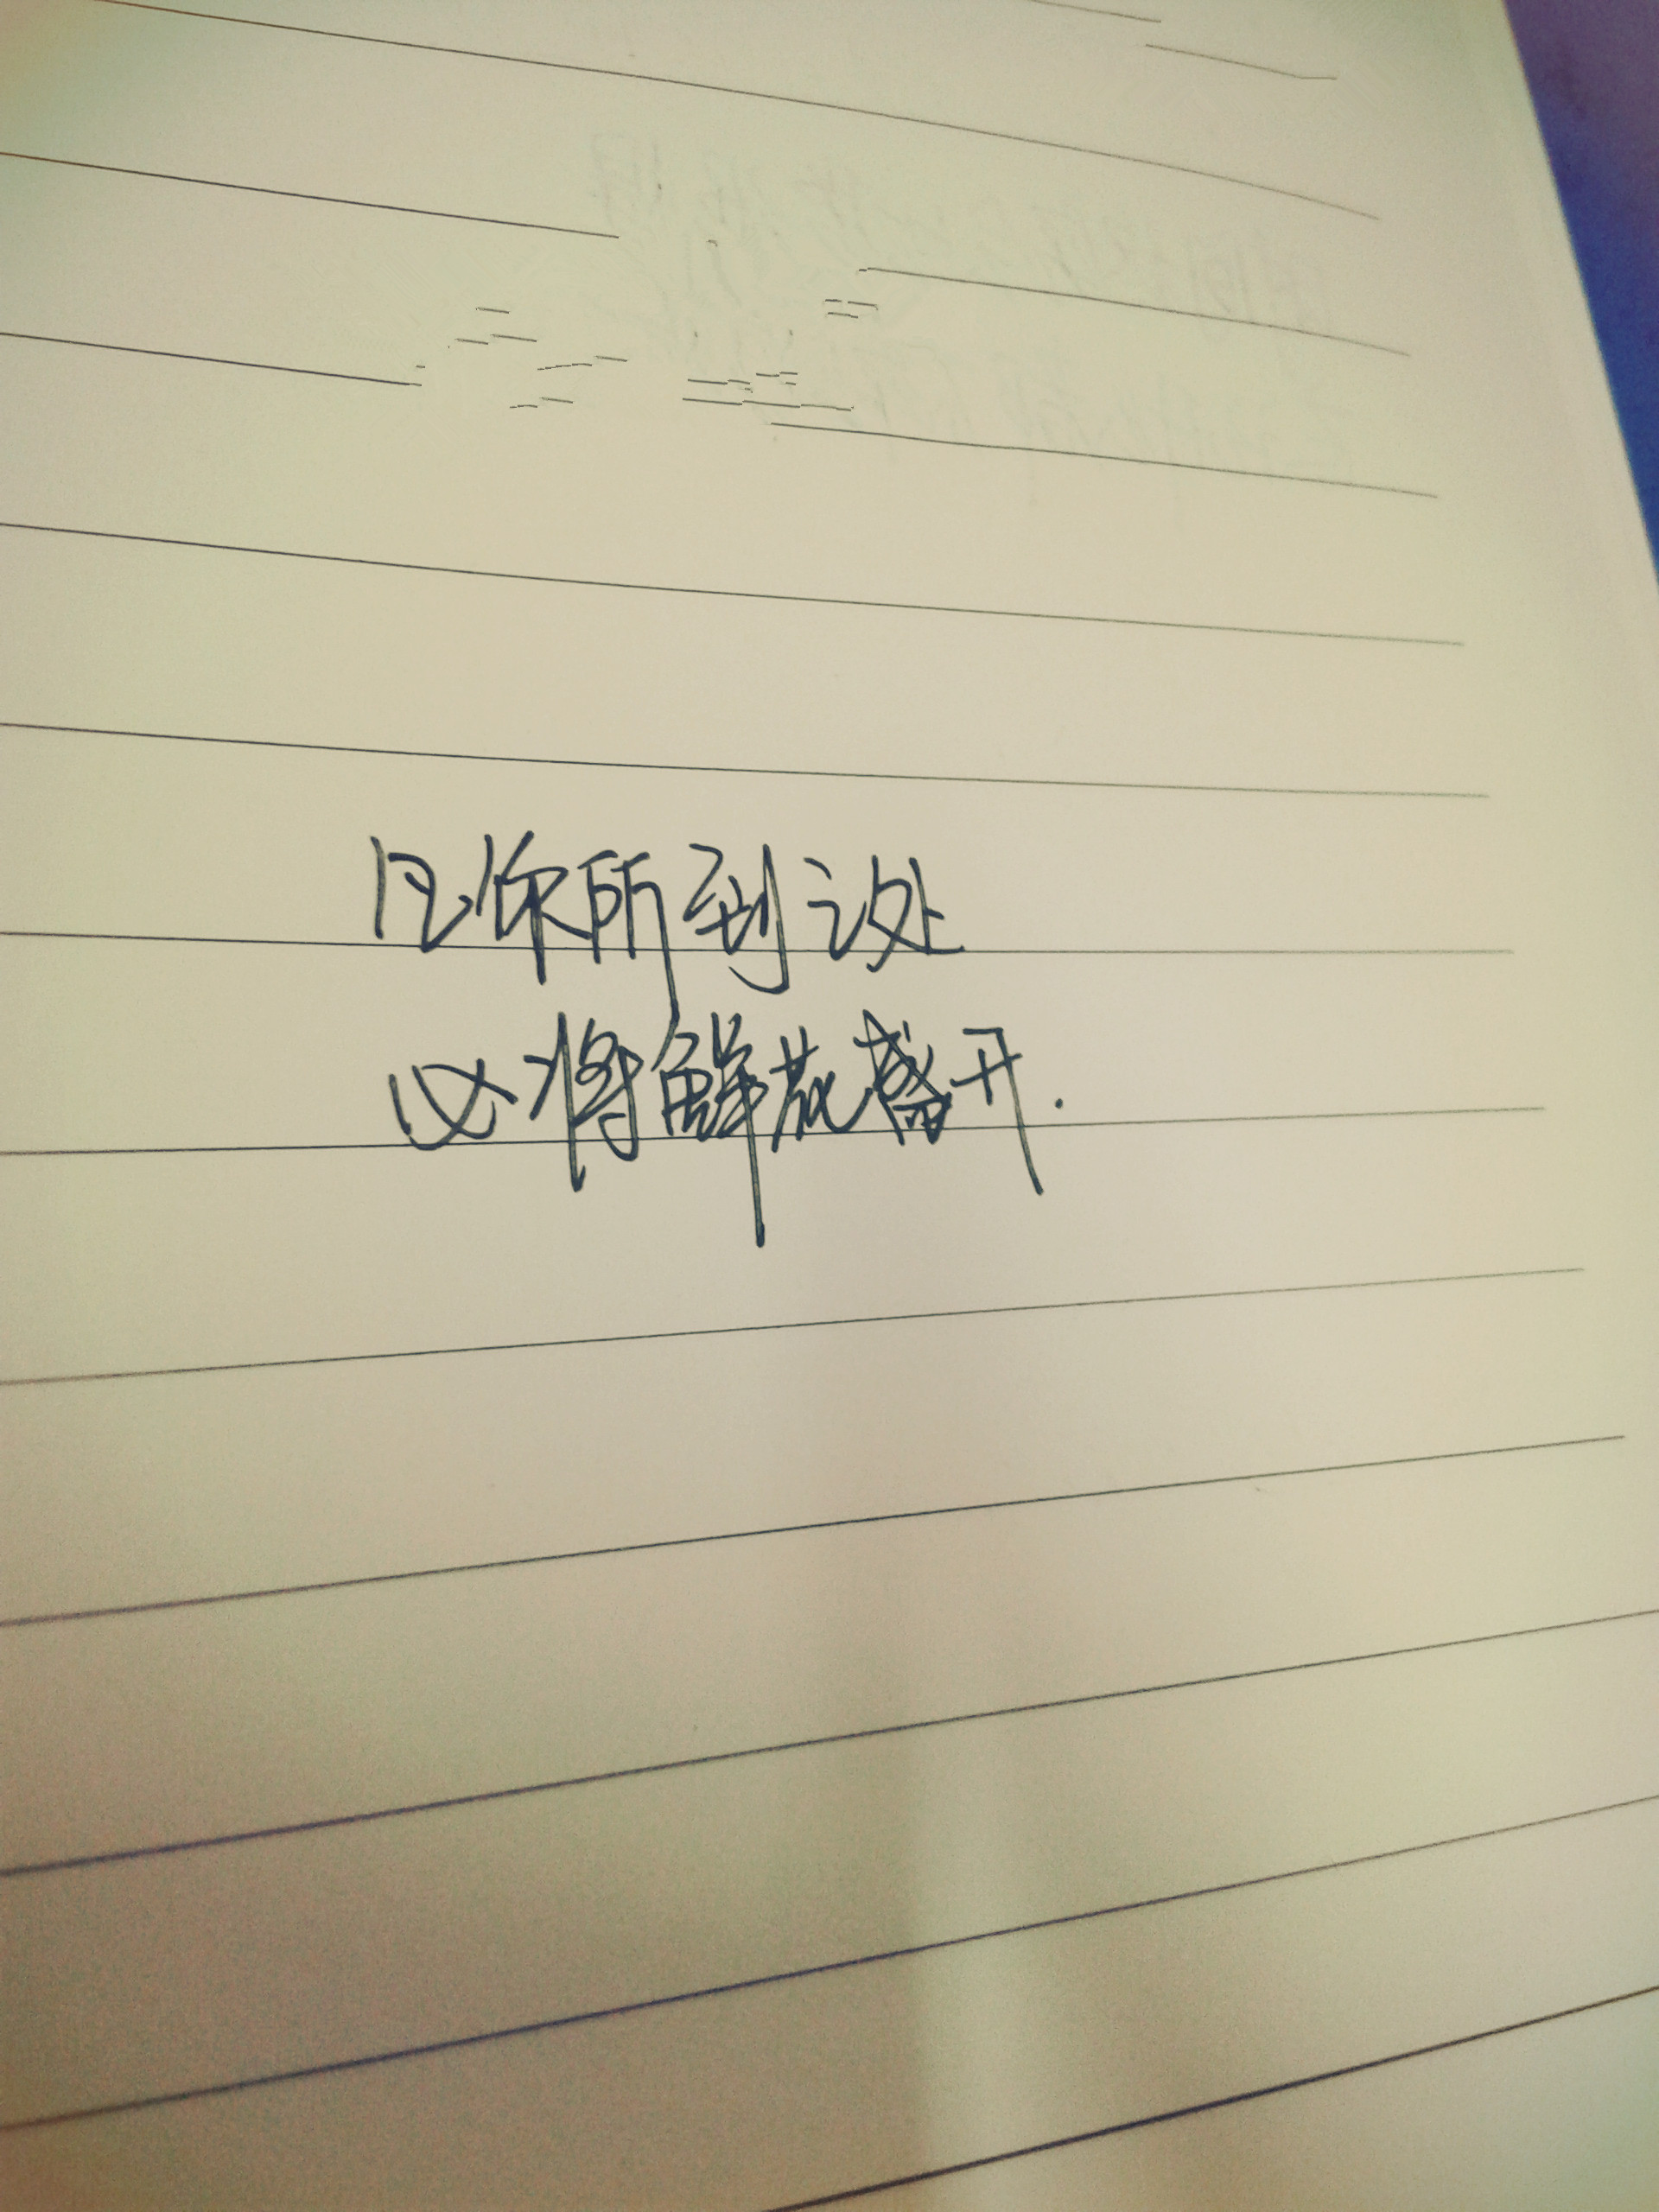 凡你所到之处
必将鲜花盛开.